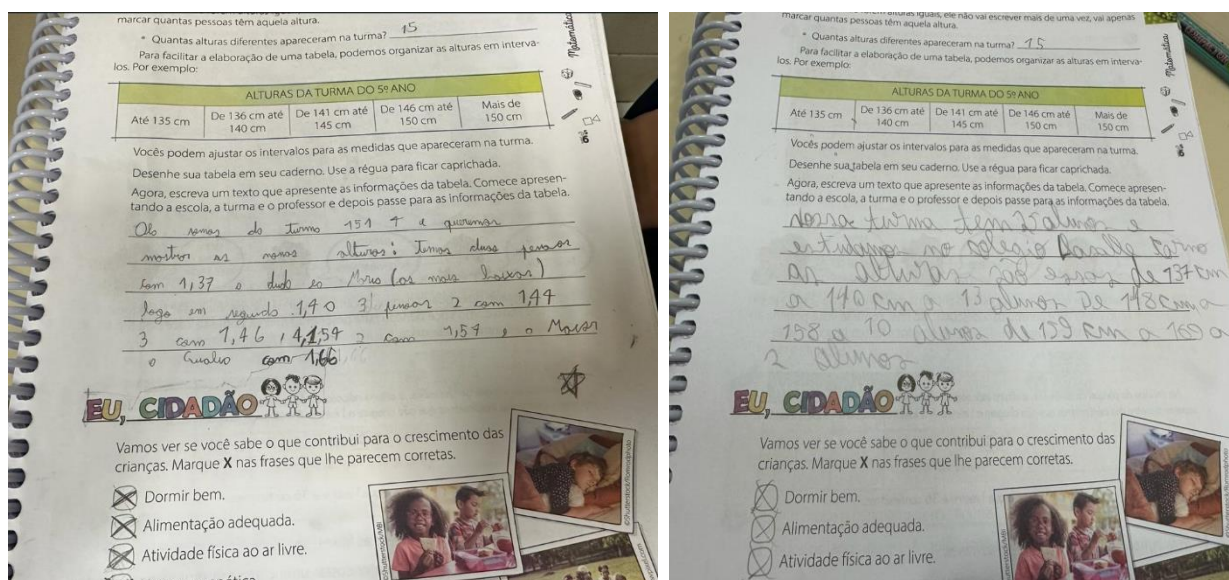 marcar quantas pessoas têm aquela altura.
• Quantas alturas diferentes apareceram na turma? 15
Para facilitar a elaboração de uma tabela, podemos organizar as alturas em interva-
los. Por exemplo:
ALTURAS DA TURMA DO 5º ANO
Até 135 cm De 136 cm até 140 cm De 141 cm até 145 cm De 146 cm até 150 cm Mais de 150 cm
Vocês podem ajustar os intervalos para as medidas que apareceram na turma.
Desenhe sua tabela em seu caderno. Use a régua para ficar caprichada.
Agora, escreva um texto que apresente as informações da tabela. Comece apresen-
tando a escola, a turma e o professor e depois passe para as informações da tabela.
Olo somos do turmo 151 e queremos
mostror as nossas alturas: Temos duas pessoas
com 1,37 o (os mais baixos)
logo em segundo 1,40 3 pessoas 2 com 1,44
3 com 1,46 2 com 1,54 e o
o com 1,66
EU, CIDADÃO
Vamos ver se você sabe o que contribui para o crescimento das
crianças. Marque X nas frases que lhe parecem corretas.
Dormir bem.
Alimentação adequada.
Atividade física ao ar livre.
Matemática
©Shutterstock/MBI
marcar quantas pessoas têm aquela altura.
alturas iguais, ele não vai escrever mais de uma vez, vai apenas
• Quantas alturas diferentes apareceram na turma? 15
Para facilitar a elaboração de uma tabela, podemos organizar as alturas em interva-
los. Por exemplo:
ALTURAS DA TURMA DO 5º ANO
Até 135 cm De 136 cm até 140 cm De 141 cm até 145 cm De 146 cm até 150 cm Mais de 150 cm
Vocês podem ajustar os intervalos para as medidas que apareceram na turma.
Desenhe sua tabela em seu caderno. Use a régua para ficar caprichada.
Agora, escreva um texto que apresente as informações da tabela. Comece apresen-
tando a escola, a turma e o professor e depois passe para as informações da tabela.
Nossa turma tem 25 alunos e
estudamos no colegio Lasalle Carmo
As alturas são essas de 137 cm
a 140 cm a 13 alunos De 148 cm a
158 a 10 alunos de 159 cm a 169 a
2 alunos
EU, CIDADÃO
Vamos ver se você sabe o que contribui para o crescimento das
crianças. Marque X nas frases que lhe parecem corretas.
Dormir bem.
Alimentação adequada.
Atividade física ao ar livre.
Matemática